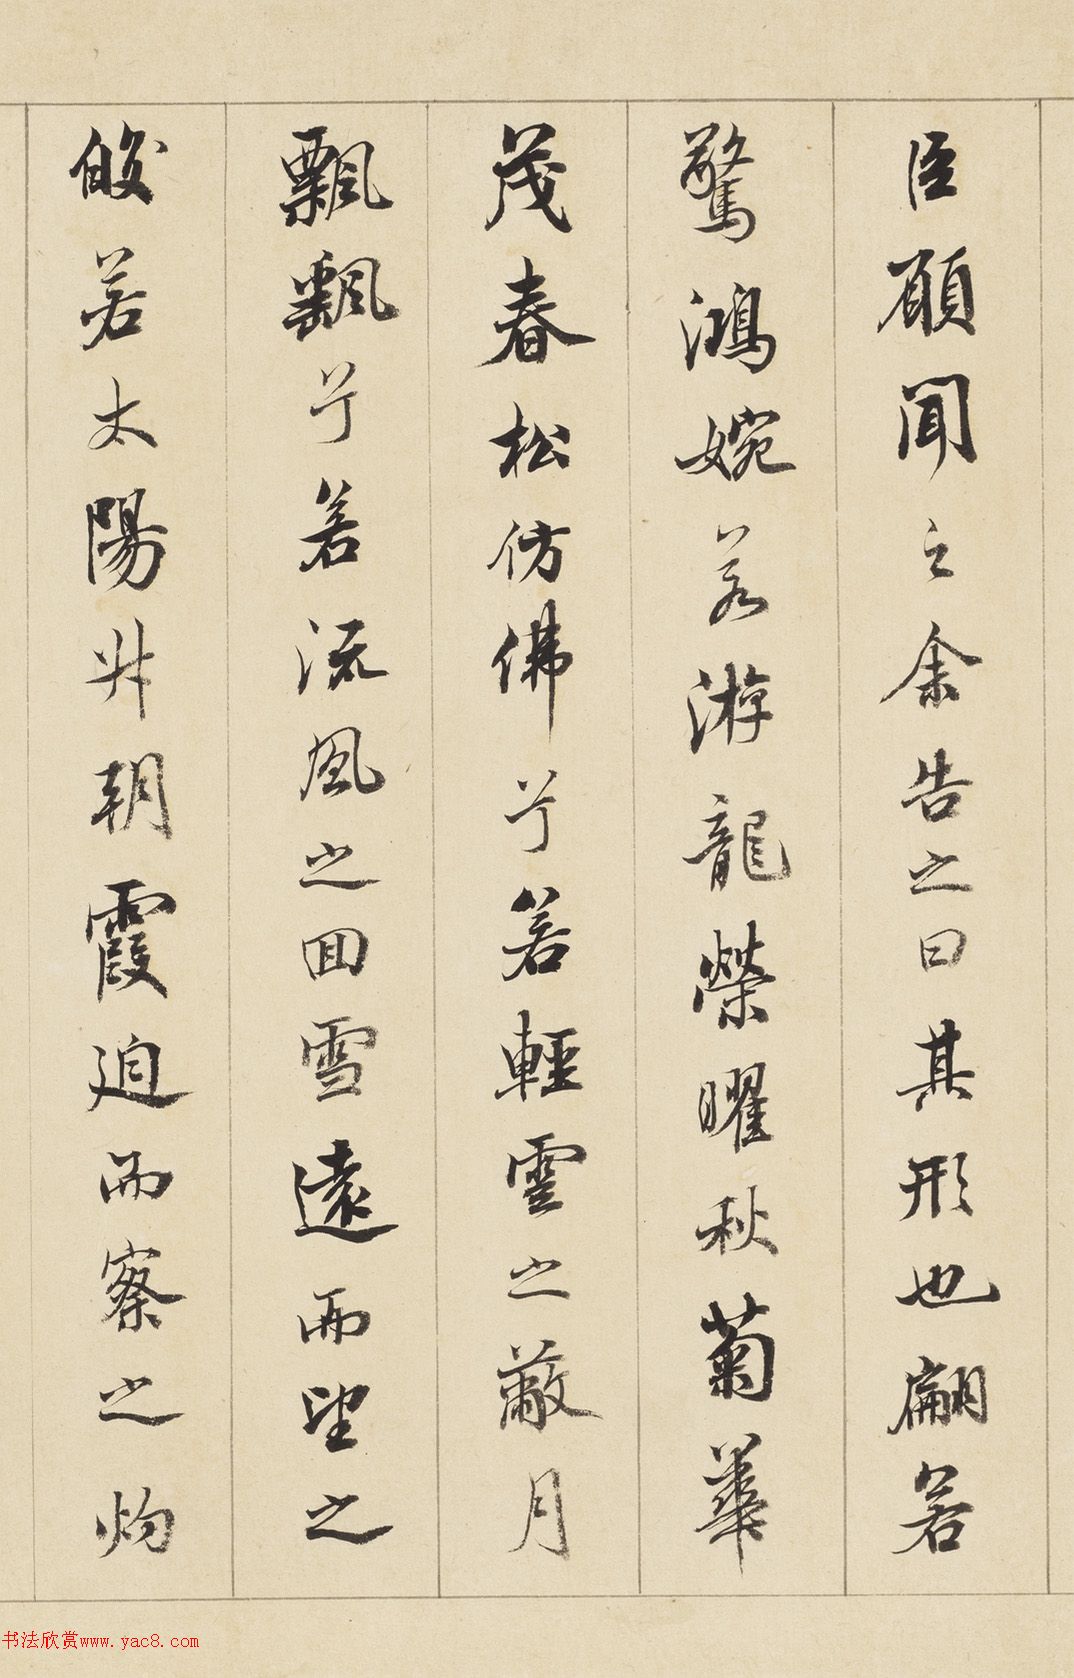 臣願聞之余告之曰其形也翩若
驚鴻婉若游龍榮曜秋菊華
茂春松仿佛兮若輕雲之蔽月
飄飄兮若流風之囬雪遠而望之
皎若太陽升朝霞迫而察之灼
书法欣赏www.yac8.com